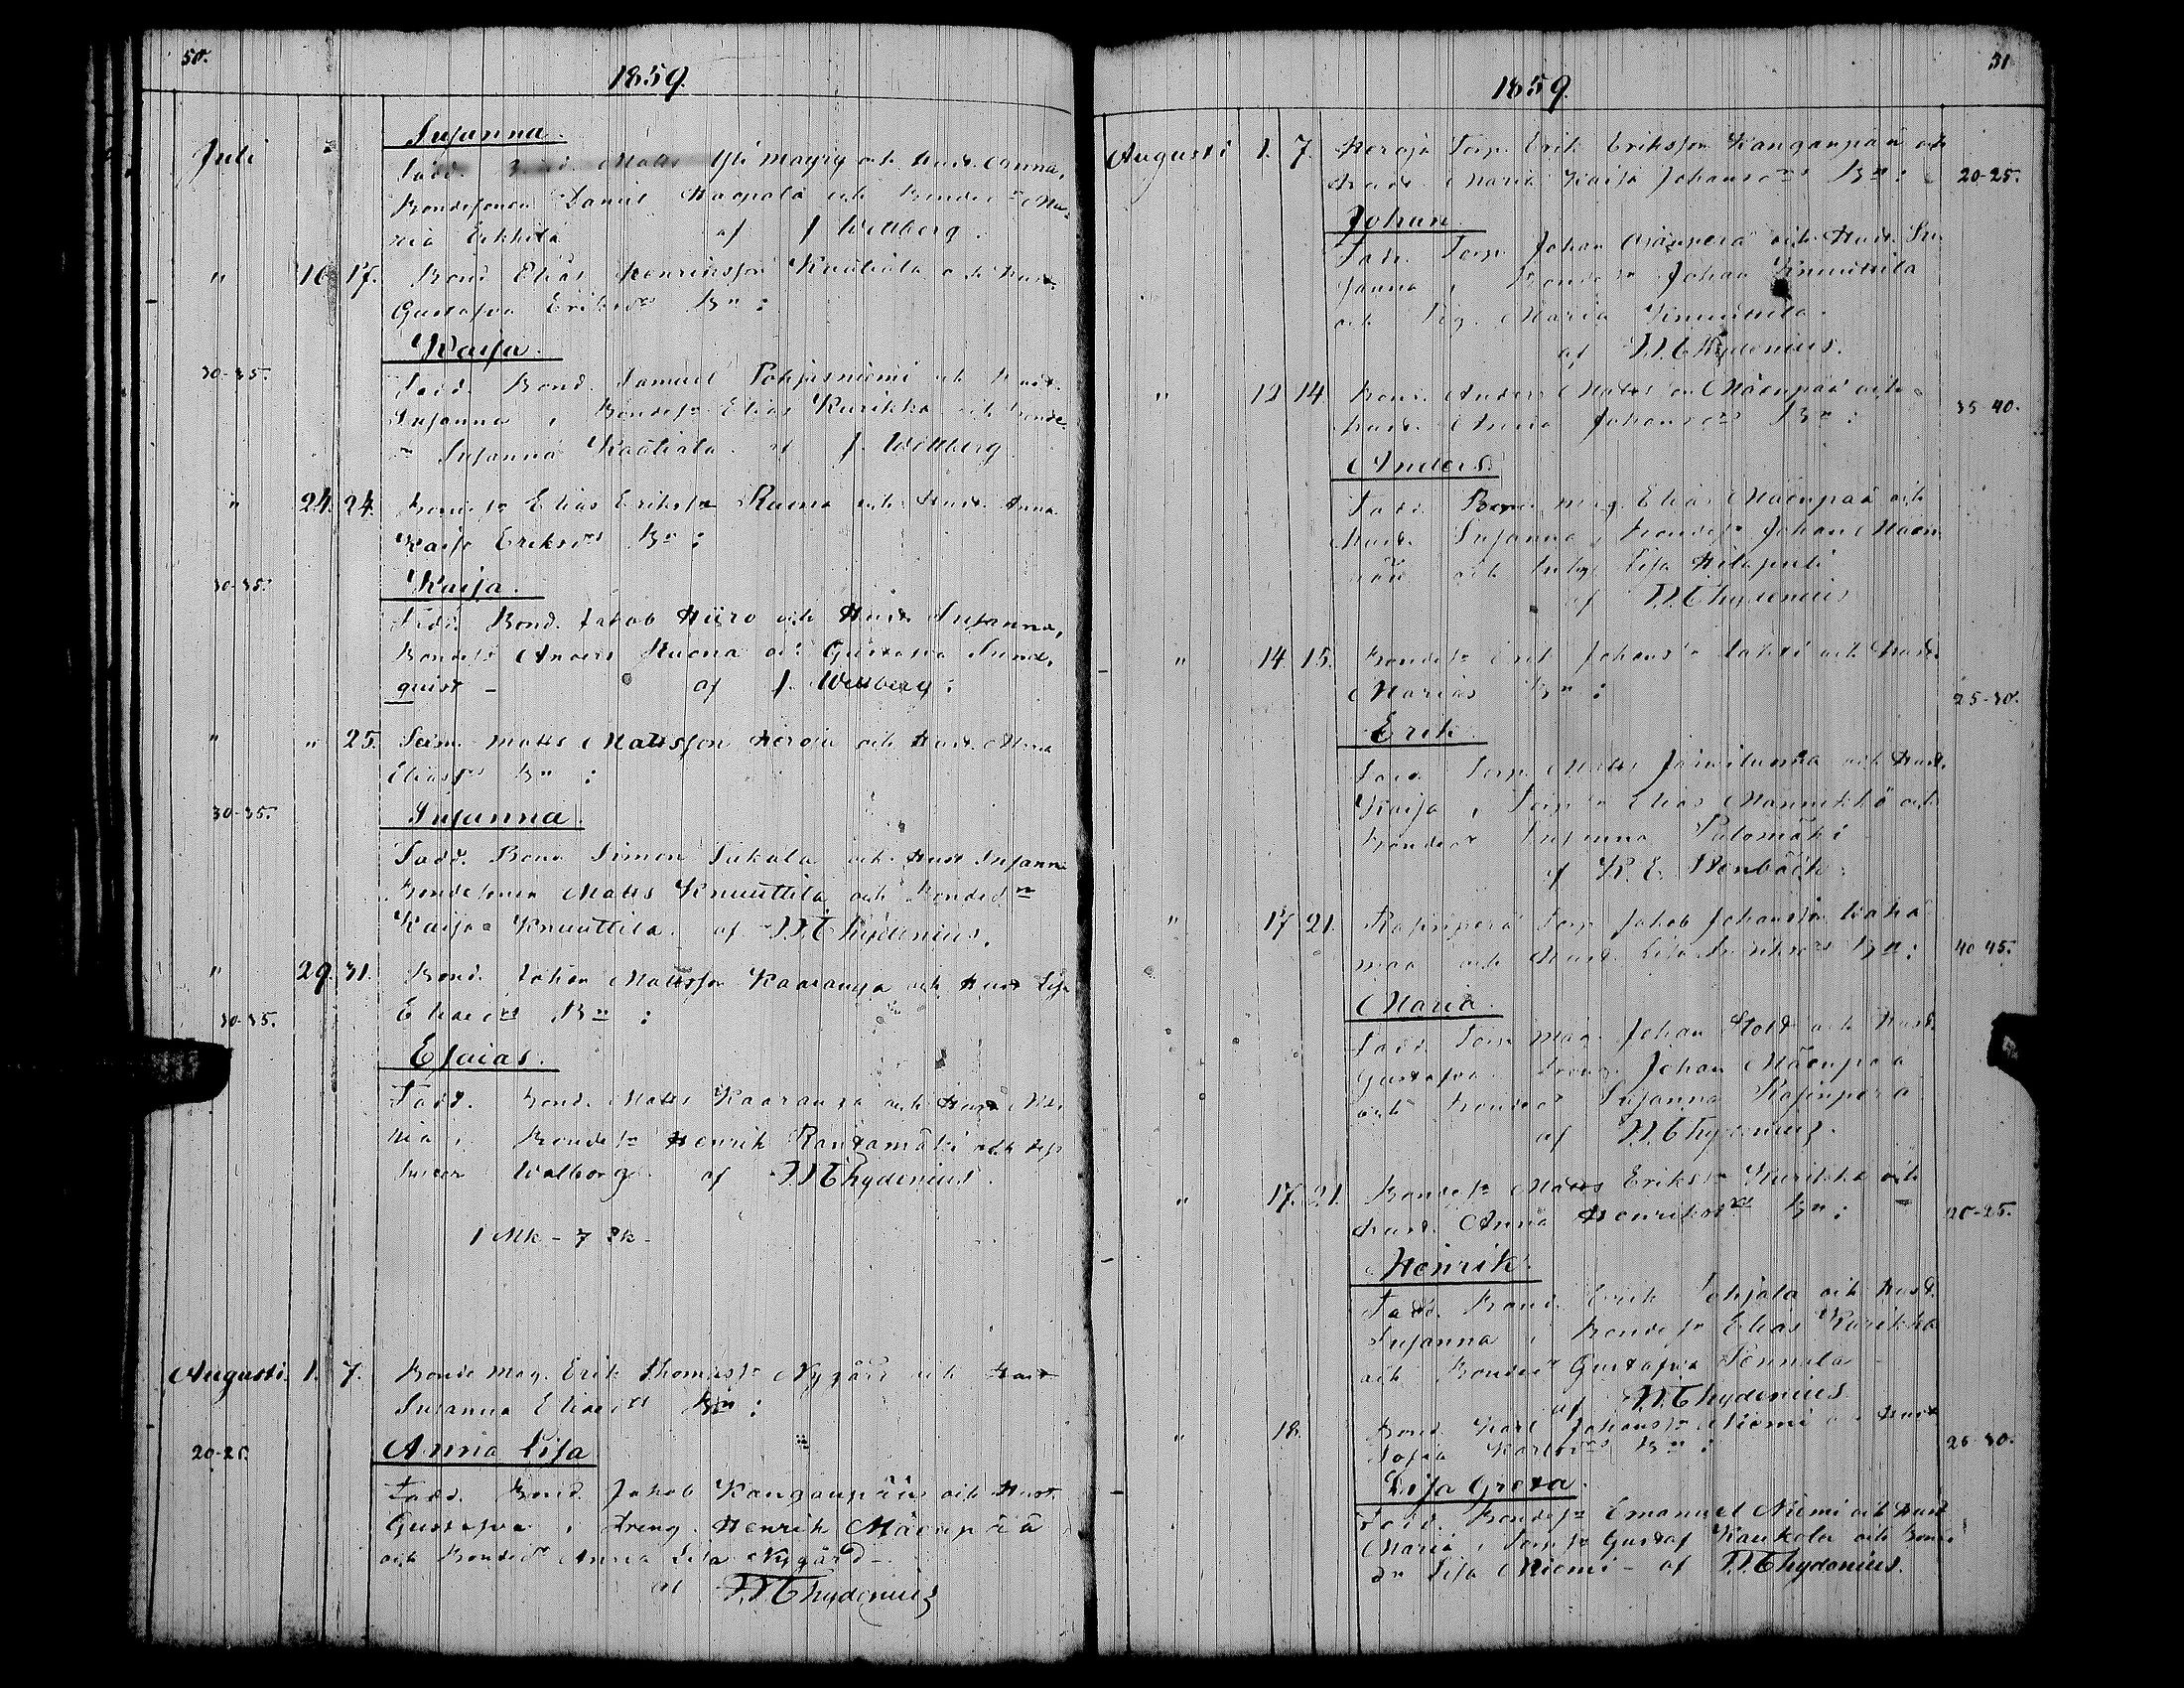 50.
1859.
Susanna.
Juli
Fadd. Bond. Matts Yli Mayry och Hust. Anna,
Bondesonen Daniel Haapala och Bonded:n Ma-
ria Erkkilä af J Wellberg.
" 16. 17. Bond Elias Henriksson Kautiala och Hust.
Gustafva Eriksd:rs B:n :
Kaisa.
30-35.
Fadd. Bond. Samuel Pohjasniemi och Hust.
Susanna, Bondes:n Elias Kurikka och Bonde-
Susanna Kautiala af J. Wellberg
" 24. 24. Bondes:n Elias Eriksson Ruona och Hust. Anna
Kaisa Eriksd:rs B:n :
30-35.
Kaisa.
Fadd. Bond. Jakob Hiiro och Hust Susanna,
Bondes:n Anders Ruona och Gustafva Sund-
quist - af J. Wellberg :
" " 25. Matts Mattsson Heroja och Hust. Anna
Eliasd:rs B:n :
30-35.
Susanna.
Fadd. Bond Simon Jukola och Hust Susanna
Bondesonen Matts Knuuttila och Bonded:n
Kaisa Knuuttila. af Thydenius.
" 29. 31. Bond. Johan Mattsson Kaaranga och Hust Lisa
Eliaed:rs B:n :
30-35.
Esaias.
Fadd. Bond. Matts Kaaranga och Hust Ma-
ria, Bondes:n Henrik Rantamäki och
Walborg. af Thydenius.
1 Mk - 7 Qk -
Augusti. 1. 7. Bonde mag. Erik Thomass:n Nygård och Hust
Susanna Eliaed:rs B:n :
20-25.
Anna Lisa
Fadd. Bond. Jakob Kanganpää och Hust.
Gustafva, Dreng. Henrik Mäenpää
och Bonded:n Anna Lisa Nygård -
af Thydenius
51
1859.
Augusti 1. 7. Heroja Torp. Erik Eriksson Kanganpää och
Hust. Maria Kaisa Johansd:rs B:n : 20-25.
Johan.
Fadd. Torp. Johan och Hust. Su-
sanna, Bondes:n Johan Knuuttila
och Pig. Maria Knuuttila.
af Thydenius.
" 12 14 Bond. Anders Mattson Mäenpää och
Hust. Anna Johansd:rs B:n : 35-40.
Anders.
Fadd. Bonde mag. Elias Mäenpää och
Hust. Susanna, Bondes:n Johan Mäen-
pää och Lisa
af Thydenius
" 14. 15. Bondes:n Erik Johans:n Lahti och Hust.
Marias B:n : 25-30.
Erik.
Fadd. Torp. Matts Järviluoma och Hust.
Kaisa, Torps:n Elias Mannikkö och
Bonded:r Susanna Palomäki
af K. E. Stenbäck.
" 17 21. Rajinperä Torp Jakob Johansson
maa och Hust. Lisa Henriksd:rs B:n : 40-45.
Maria.
Fadd. Torp mag. Johan Stolt och Hust.
Gustafva. Dreng. Johan Mäenpää
och Bonded:r Susanna Rajinperä.
af Thydenius.
" 17. 21. Bondes:n Matts Eriksson Kurikka och
Hust. Anna Henriksd:rs B:n : 20-25.
Henrik.
Fadd. Bond. Erik Pohjala och Hust.
Susanna, Bondes:n Elias Kurikka
och Bonded:r Gustafva Pennala
af Thydenius
" 18. Bond. Karl Johanss:n Niemi och Hust
Sofia Karlsd:rs B:n : 25-30.
Lisa Greta.
Fadd. Bondes:n Emanuel Niemi och Hust
Maria, Torps:n Gustaf Kaukola och Bonde
d:n Lisa Niemi - af Thydenius.